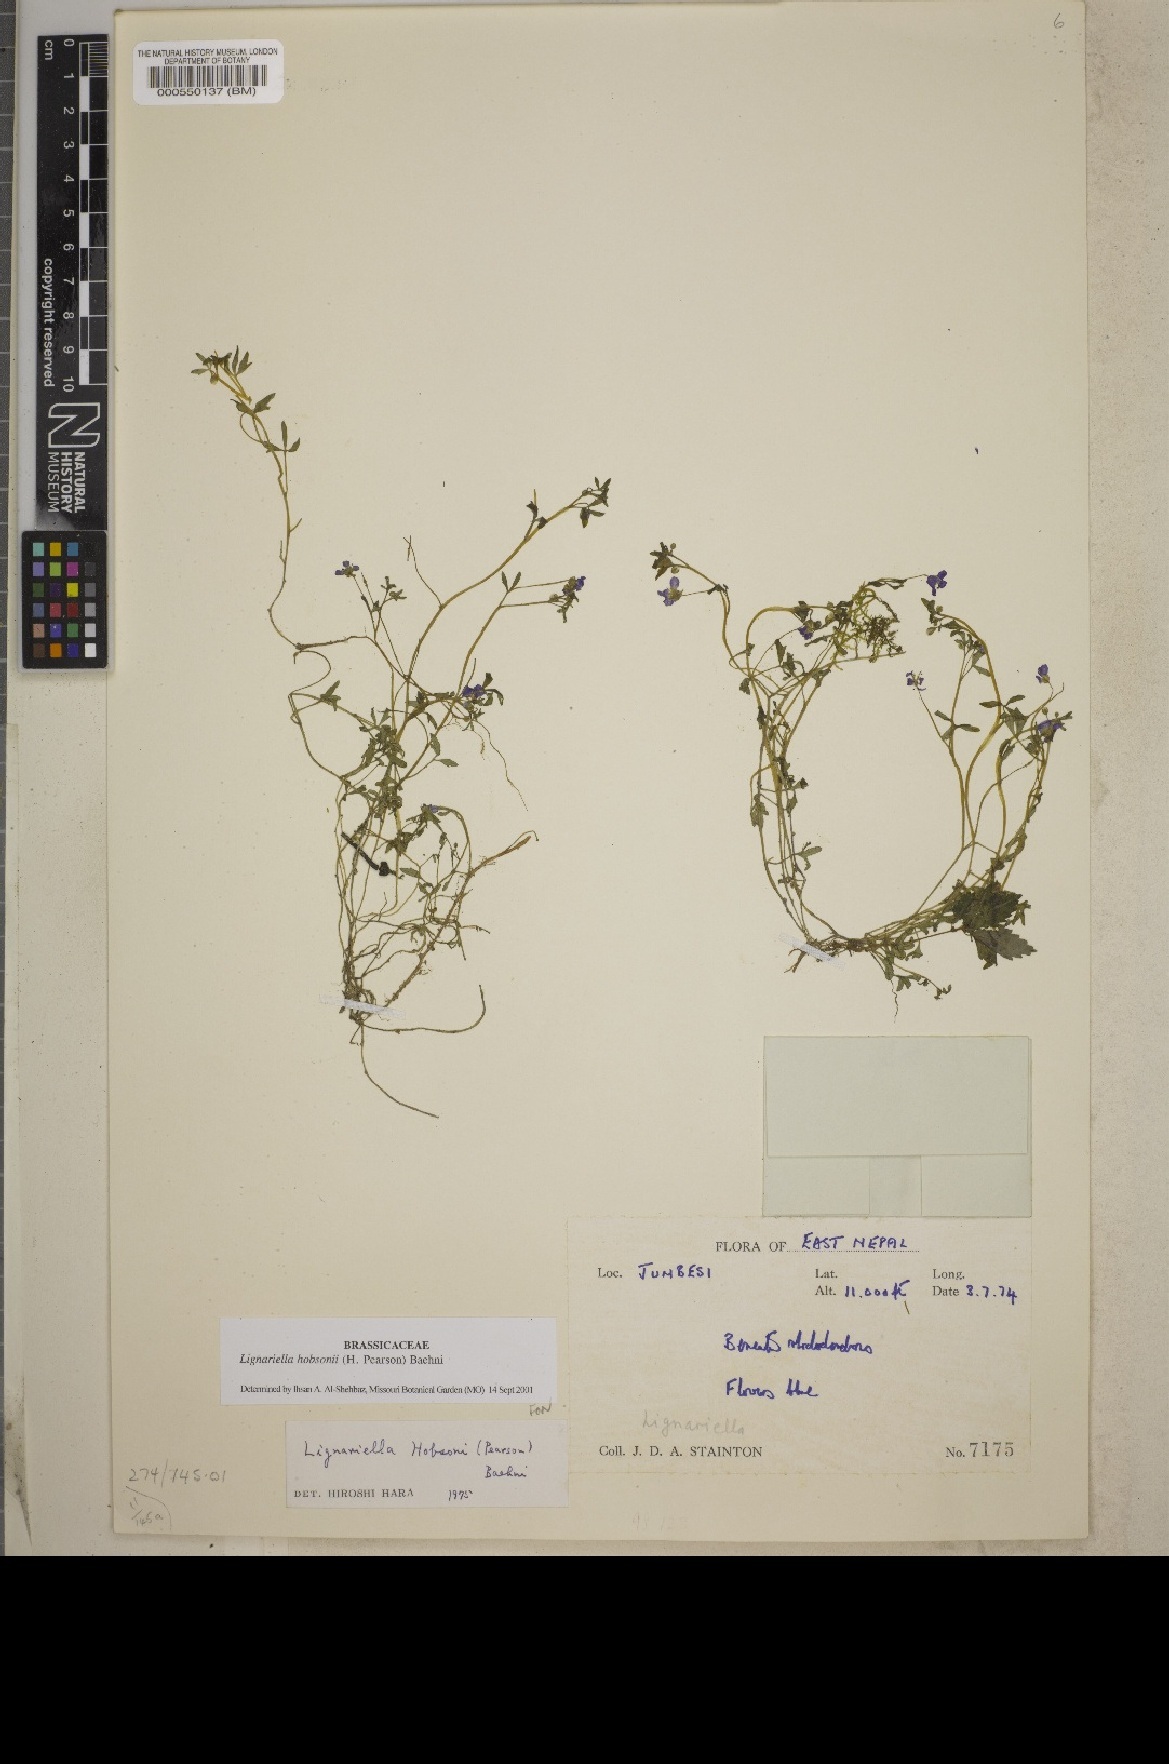 6
THE NATURAL HISTORY MUSEUM, LONDON
DEPARTMENT OF BOTANY
000550137 (BM)
cm
0
1
2
3
4
5
6
7
8
9
10
copyright reserved
NATURAL
HISTORY
MUSEUM
FLORA OF EAST NEPAL
Loc. JUMBESI Lat. Long.
Alt. 11.000 ft Date 3.7.74
Beneath rhododendrons
Flowers blue
Lignariella
Coll. J. D. A. STAINTON No. 7175
BRASSICACEAE
Lignariella hobsonii (H. Pearson) Baehni
Determined by Ihsan A. Al-Shehbaz, Missouri Botanical Garden (MO) 14 Sept 2001
FON
Lignariella Hobsoni (Pearson)
Baehni
DET. HIROSHI HARA 1975
274/745.01